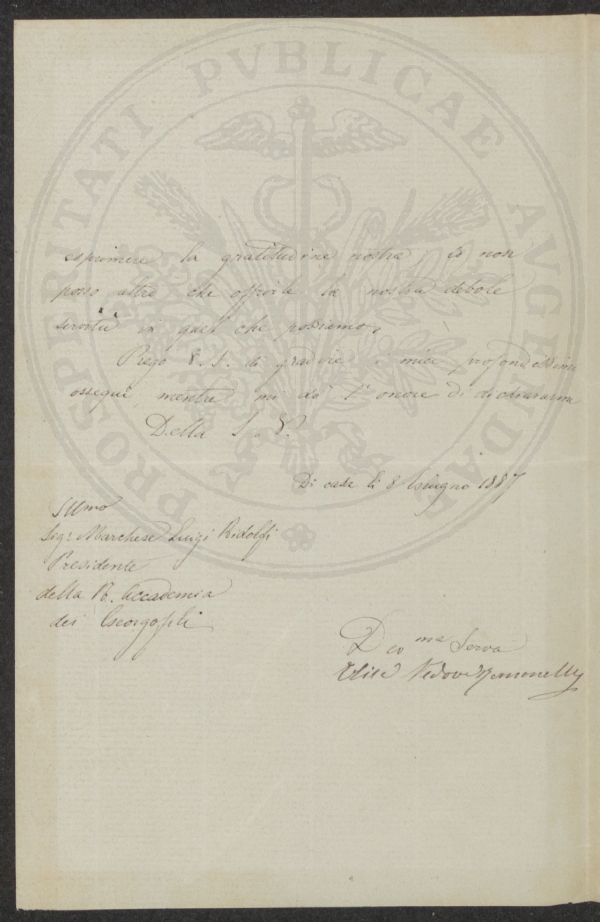 PROSPERITATI PVBLICAE AVGENDAE
esprimere la gratitudine nostra, io non
posso altro che offrirle la nostra debole
servitù in quel che possiamo.
Prego V. S. di gradire i miei profondissimi
ossequi, mentre mi dò l'onore di dichiararmi
Della S. V.
Di casa li 8 Giugno 1887
Illmo
Sigr Marchese Luigi Ridolfi
Presidente
della R. Accademia
dei Georgofili
Devma Serva
Elisa Vedova